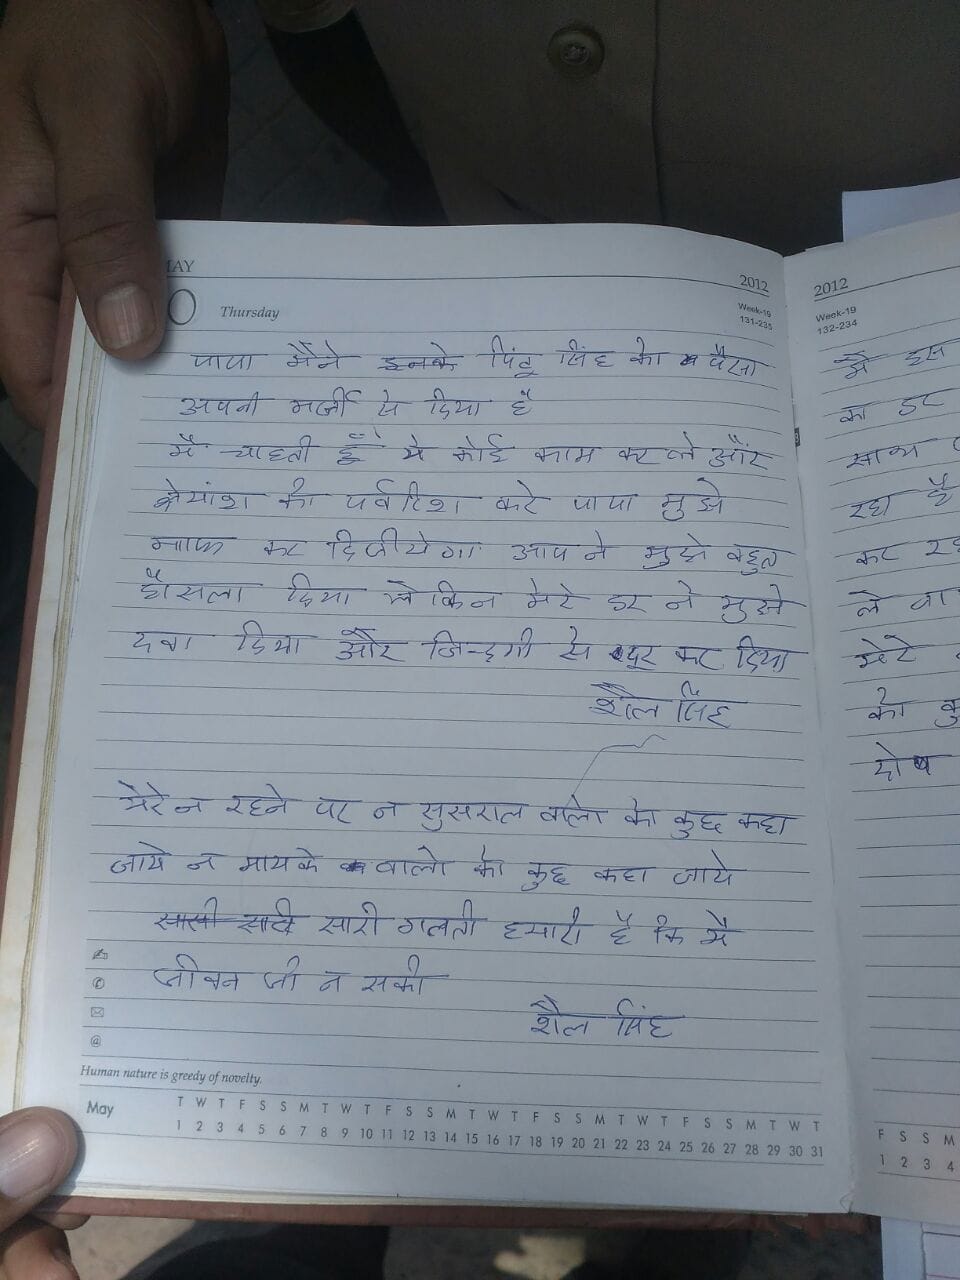 MAY
2012
Thursday
Week-19
131-235
पापा मैंने इनके पिंटू सिंह को पैसा
अपनी मर्जी से दिया है
मैं चाहती हूँ ये कोई काम कर ले और
श्रेयांश की पर्वरिश करे पापा मुझे
माफ कर दिजीयेगा आप ने मुझे बहुत
हौसला दिया लेकिन मेरे डर ने मुझे
दबा दिया और जिन्दगी से दूर कर दिया
शैल सिंह
मेरे न रहने पर न सुसराल वालो को कुछ कहा
जाये न मायके वालो को कुछ कहा जाये
सारी गलती हमारी है कि मै
जीवन जी न सकी
शैल सिंह
Human nature is greedy of novelty.
May
T W T F S S M T W T F S S M T W T F S S M T W T F S S M T W T
1 2 3 4 5 6 7 8 9 10 11 12 13 14 15 16 17 18 19 20 21 22 23 24 25 26 27 28 29 30 31
2012
Week-19
132-234
मै इस
का डर
साथ
रहा है
कर
ले
मेरे
को कु
दोष
F S S M
1 2 3 4